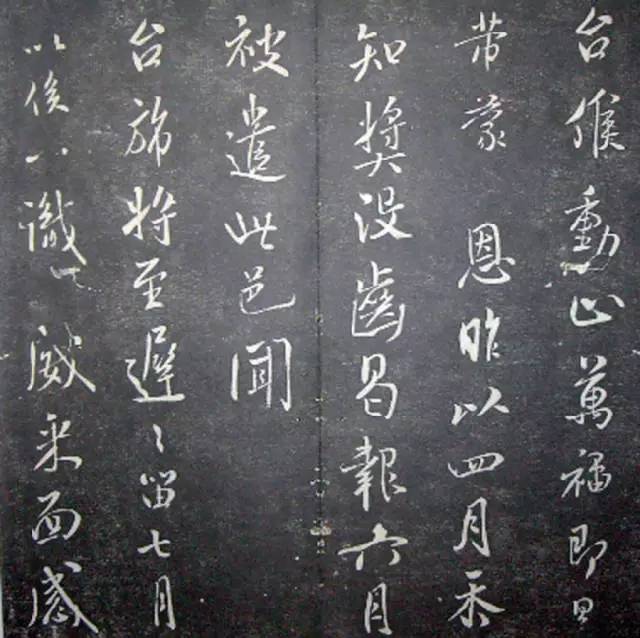 台候動止萬福即日
芾蒙 恩昨以四月承
知獎没齒曷報六月
被遣此邑聞
台旆將至遲〻留七月
以俟一識 威采面感